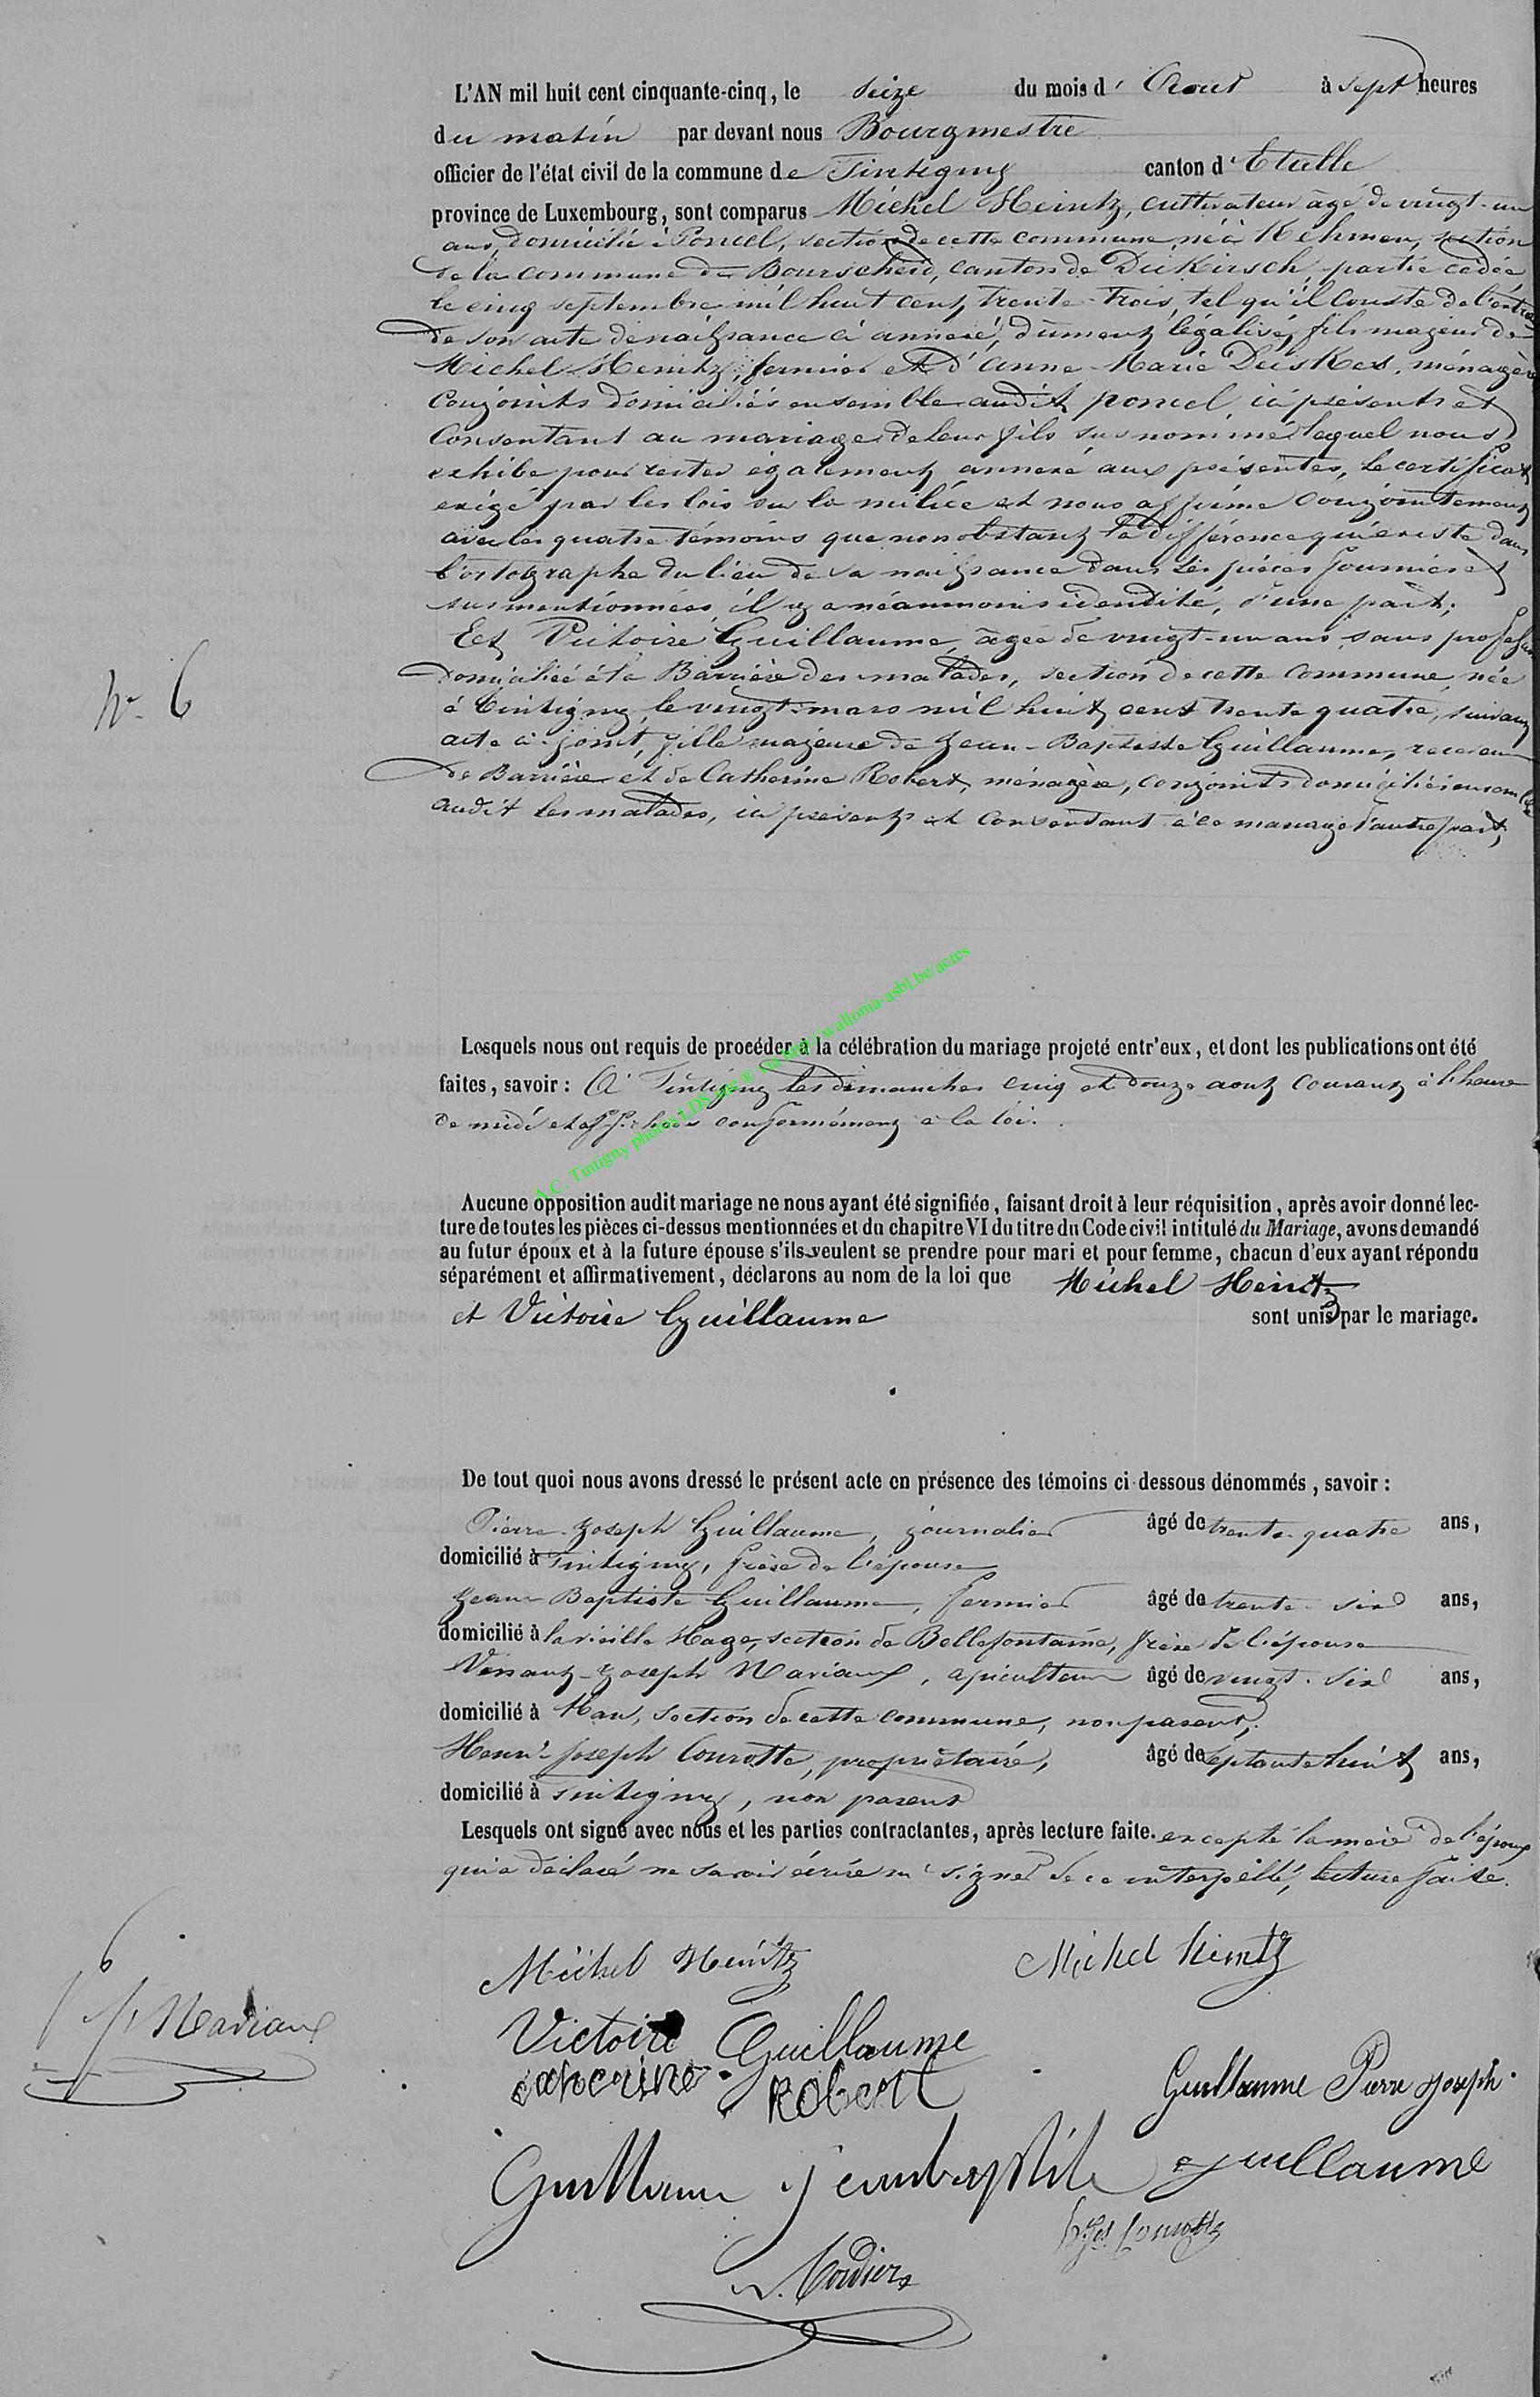 L'AN mil huit cent cinquante-cinq, le seize du mois d' Aout à sept heures
du matin par devant nous Bourgmestre
officier de l'état civil de la commune de Tintigny canton d'Etalle
province de Luxembourg, sont comparus Michel Heintz, cultivateur âgé de vingt-un
ans, domicilié à Poncel, section de cette commune, né à Kehmen, section
de la commune de Bourscheid, canton de Diekirsch, partie cédée
le cinq septembre mil huit cent trente-trois, tel qu'il conste de l'extrait
de son acte de naissance ci annexé, dument légalisé, fils majeur de
Michel Heintz, fermier et d'Anne-Marie Deiskes, ménagère
conjoints domiciliés ensemble audit poncel, ici présents et
Consentant au mariage de leur fils sus nommé lequel nous
exhibe pour rester également annexé aux présentes, le certificat
exigé par les lois sur la milice et nous affirme conjointement
avec les quatre témoins que nonobstant la différence qui existe dans
l'ortographe du lieu de sa naissance dans les pièces fournies et
sus mentionnées, il y a néanmoins idendité, d'une part;
Et Victoire Guillaume, âgée de vingt-un ans, sans profession
domiciliée à la Barrière des malades, section de cette commune, née
à Tintigny, le vingt mars mil huit cent trente quatre, suivant
acte ci-joint, fille majeure de Jean-Baptiste Guillaume, receveur
de Barrière et de Catherine Robert, ménagère, conjoints domiciliés ensemble
audit les malades, ici présents et consentant à ce mariage d'autre part,
N° 6
A.C. Tintigny photos LDS via http://wallonia-asbl.be/actes
Lesquels nous ont requis de procéder à la célébration du mariage projeté entr'eux, et dont les publications ont été
faites, savoir : à Tintigny les dimanches cinq et douze aout courant à l'heure
de midi et affichées conformément à la loi.
Aucune opposition audit mariage ne nous ayant été signifiée, faisant droit à leur réquisition, après avoir donné lec-
ture de toutes les pièces ci-dessus mentionnées et du chapitre VI du titre du Code civil intitulé du Mariage, avons demandé
au futur époux et à la future épouse s'ils veulent se prendre pour mari et pour femme, chacun d'eux ayant répondu
séparément et affirmativement, déclarons au nom de la loi que Michel Heintz
et Victoire Guillaume sont unis par le mariage.
De tout quoi nous avons dressé le présent acte en présence des témoins ci-dessous dénommés, savoir :
Pierre-Joseph Guillaume, journalier âgé de trente-quatre ans,
domicilié à Tintigny, frère de l'épouse
Jean Baptiste Guillaume, fermier âgé de trente-six ans,
domicilié à la vieille Hage, section de Bellefontaine, frère de l'épouse
Venant-Joseph Mariaux, apiculteur âgé de vingt-six ans,
domicilié à Han, section de cette commune, non parent,
Henri-Joseph Courotte, propriétaire, âgé de septante huit ans,
domicilié à Tintigny, non parent
Lesquels ont signé avec nous et les parties contractantes, après lecture faite. excepté la mère de l'époux
qui a déclaré ne savoir écrire ni signer de ce interpellé, lecture faite.
Michel Heintz Michel Heintz
Mariaux
Victoire Guillaume
catherine Robert Guillaume Pierre Joseph
Guillaume jeanbaptiste Guillaume
Courotte